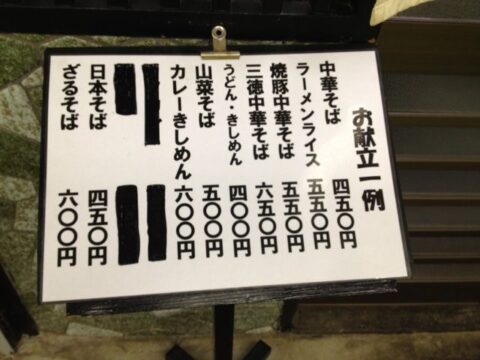 お献立一例
中華そば 四五〇円
ラーメンライス 五五〇円
焼豚中華そば 五五〇円
三徳中華そば 六五〇円
うどん・きしめん 四〇〇円
山菜そば 五〇〇円
カレーきしめん 六〇〇円
日本そば 四五〇円
ざるそば 六〇〇円